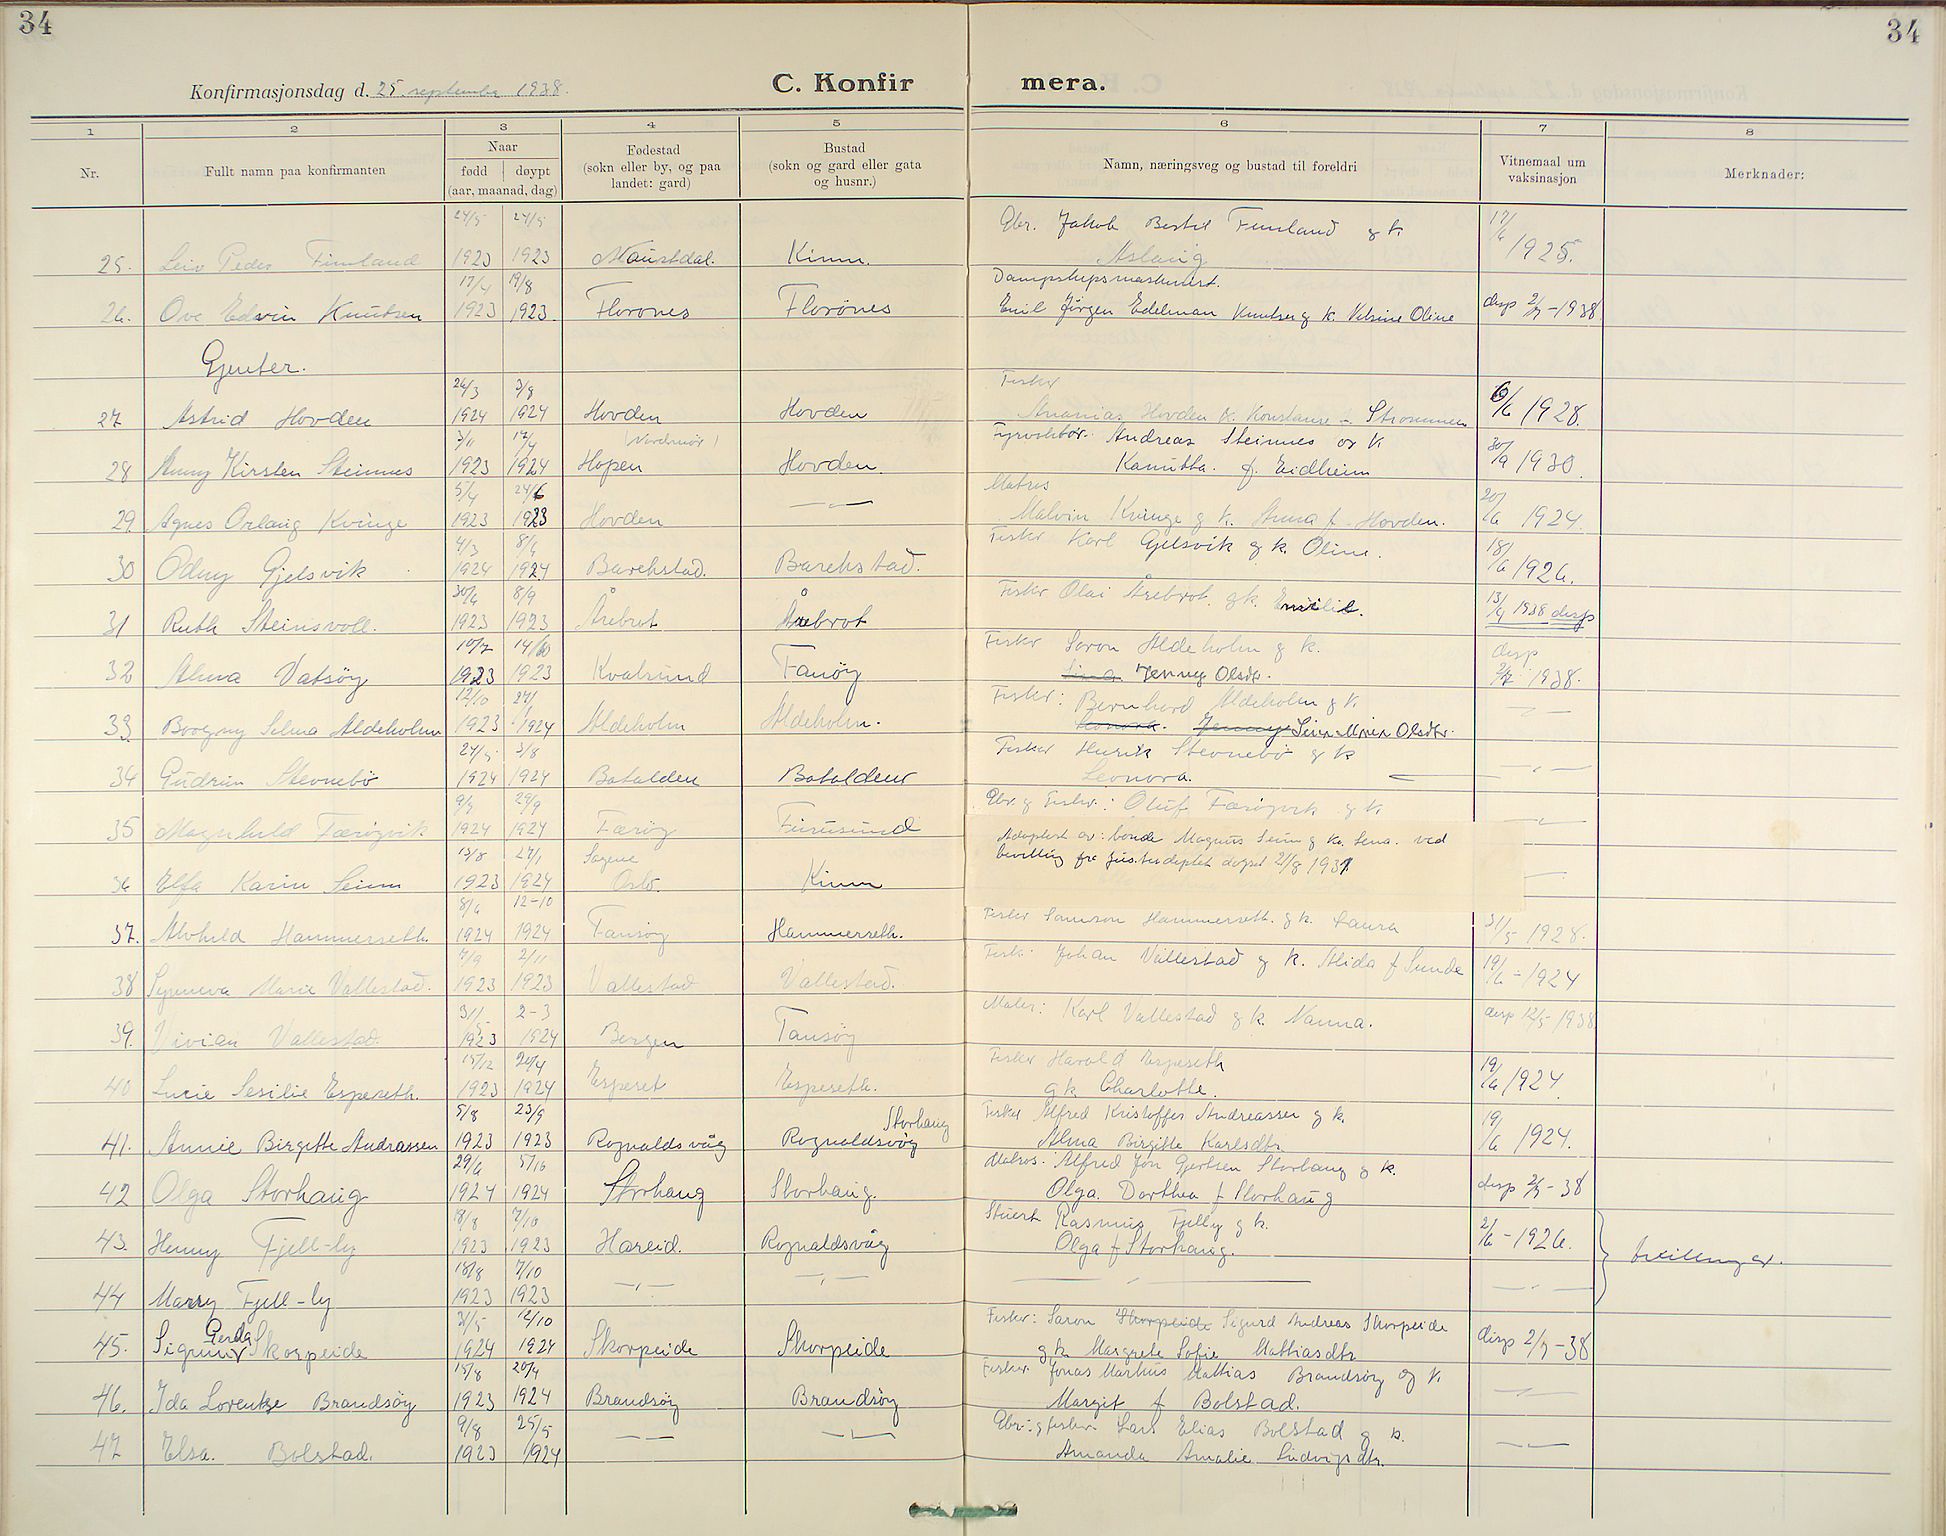 34
34
Konfirmasjonsdag d. 25. september 1938.
C. Konfir mera.
1 2 3 4 5 6 7 8
Nr.
Fullt namn paa konfirmanten
Naar
fødd døypt
(aar, maanad, dag)
Fødestad
(sokn eller by, og paa
landet: gard)
Bustad
(sokn og gard eller gata
og husnr.)
Namn, næringsveg og bustad til foreldri
Vitnemaal um
vaksinasjon
Merknader:
24/5 24/5 Gbr. Jakob Bertil Fimland g k. 17/6
25. Leiv Peder Fimland 1923 1923 Naustdal. Kinn. Aslaug 1925.
17/4 19/8 Dampskipsmaskinist.
26. Ove Edvin Knutsen 1923 1923. Florønes Florønes Emil Jørgen Edelman Knutsen g k. Oline disp 2/7-1938
Gjenter.
26/3 3/8 Fisker
27 Astrid Hovden 1924 1924 Hovden Hovden Ananias Hovden k. Konstanse f. Strømmen 6/6 1928.
3/11 17/4 (Nordmør) Fyrvokter. Andreas Steinnes og k 30/9
28 Anny Kirsten Steinnes 1923 1924 Hopen Hovden. Kanutta. f. Eidheim 1930.
5/4 24/6 Matros 20/6
29. Agnes Orlaug Kvinge 1923 1923 Hovden —"— Malvin Kvinge g k. Anna f. Hovden. 1924.
4/3 8/4 Fisker Karl Gjelsvik g k. Oline. 18/6
30 Odny Gjelsvik 1924 1924 Barekstad. Barekstad. 1926.
30/6 8/9 Fisker Olai Årebrot. g k. Emilie. 13/9 1938 disp
31 Ruth Steinsvoll. 1923 1923 Årebrot Årebrot
10/7 14/10 Fisker Saron Aldeholm g k. disp
32 Alma Vatsøy 1923 1923 Kvalsund Fanøy Jenney Olsdtr. 1938.
12/10 27/1 Fisker: Bernhard Aldeholm g k
33 Borgny Selma Aldeholm 1923 1924 Aldeholm Aldeholm. Olsdtr. —"—
27/5 3/8 Fisker Henrik Stevnebø g k
34 Gudrun Stevnebø 1924 1924 Batalden Batalden Leonora. —"—
9/7 29/9 Gbr. g fisker: Oluf Færøyvik g k
35 Magnhild Færøyvik 1924 1924 Færøy Furusund —"—
13/8 27/1 Sagene Adoptert av: bonde Magnus Seim g k. Lena. ved
36 Elfa Karin Seim 1923 1924 Oslo. Kinn bevilling fra Justisdeptet dagset 21/8 1931.
8/6 12-10 Fisker Samson Hammerseth. g k. Laura 31/5
37. Alvhild Hammerseth. 1924 1924 Fansøy Hammerseth. 1928.
7/9 2/11 Fisk: Johan Vallestad g k. Alida f Sunde 19/6-1924
38 Synneva Marie Vallestad. 1923 1923 Vallestad Vallestad.
3/11 2-3 Maler: Karl Vallestad g k. Nanna. disp 12/5 1938
39. Vivian Vallestad. 1923 1924 Bergen Tansøy
15/12 20/4 Fisker Harald Espeseth 19/6 1924
40 Lucie Sesilie Espeseth. 1923 1924 Espeset Espeseth. g k. Charlotte.
5/8 23/9 Storhaug Fisker Alfred Kristoffer Andreassen g k. 19/6 1924.
41. Annie Birgitte Andrassen 1923 1923 Rognaldsvåg Rognaldsvåg Alma Birgitte Karlsdtr
29/6 5/10 Matros. Alfred Jon Gjertsen Storhaug g k.
42 Olga Storhaug 1924 1924 Storhaug Storhaug. Olga. Dorthea f Storhaug disp 2/7-38
18/8 7/10 Stuert Rasmus Fjelly g k. 2/6-1926.
43. Henny Fjell-ly 1923 1923 Hareid. Rognaldsvåg Olga f Storhaug. tvillinger.
18/8 7/10
44 Marry Fjell-ly 1923 1923 —"— —"— —"— —"—
31/5 12/10 Fisker: Saron Skorpeide Sigurd Andreas Skorpeide
45. Sigunn Gerda Skorpeide 1924 1924 Skorpeide Skorpeide g k. Margrete Sofie Mathiasdtr disp 2/7-38
15/8 20/4 Fisker Jonas Markus Mathias Brandsøy og k.
46. Ida Lorentze Brandsøy 1923 1924 Brandsøy Brandsøy Margit f Bolstad. —"—
9/8 25/5 Gbr. g fisker Lars Elias Bolstad g k.
47 Elsa. Bolstad. 1923 1924 —"— —"— Amanda Amalie Ludvigsdtr. —"—